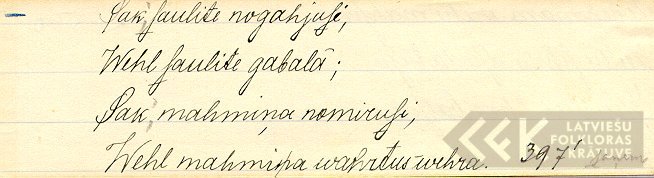 Sak, saulite nogahjusi,
Wehl saulite gabalâ;
Sak, mahmiņa nomirusi,
Wehl mahmiņa wahrtus wehra. 397¹
LATVIEŠU
FOLKLORAS
KRĀTUVE